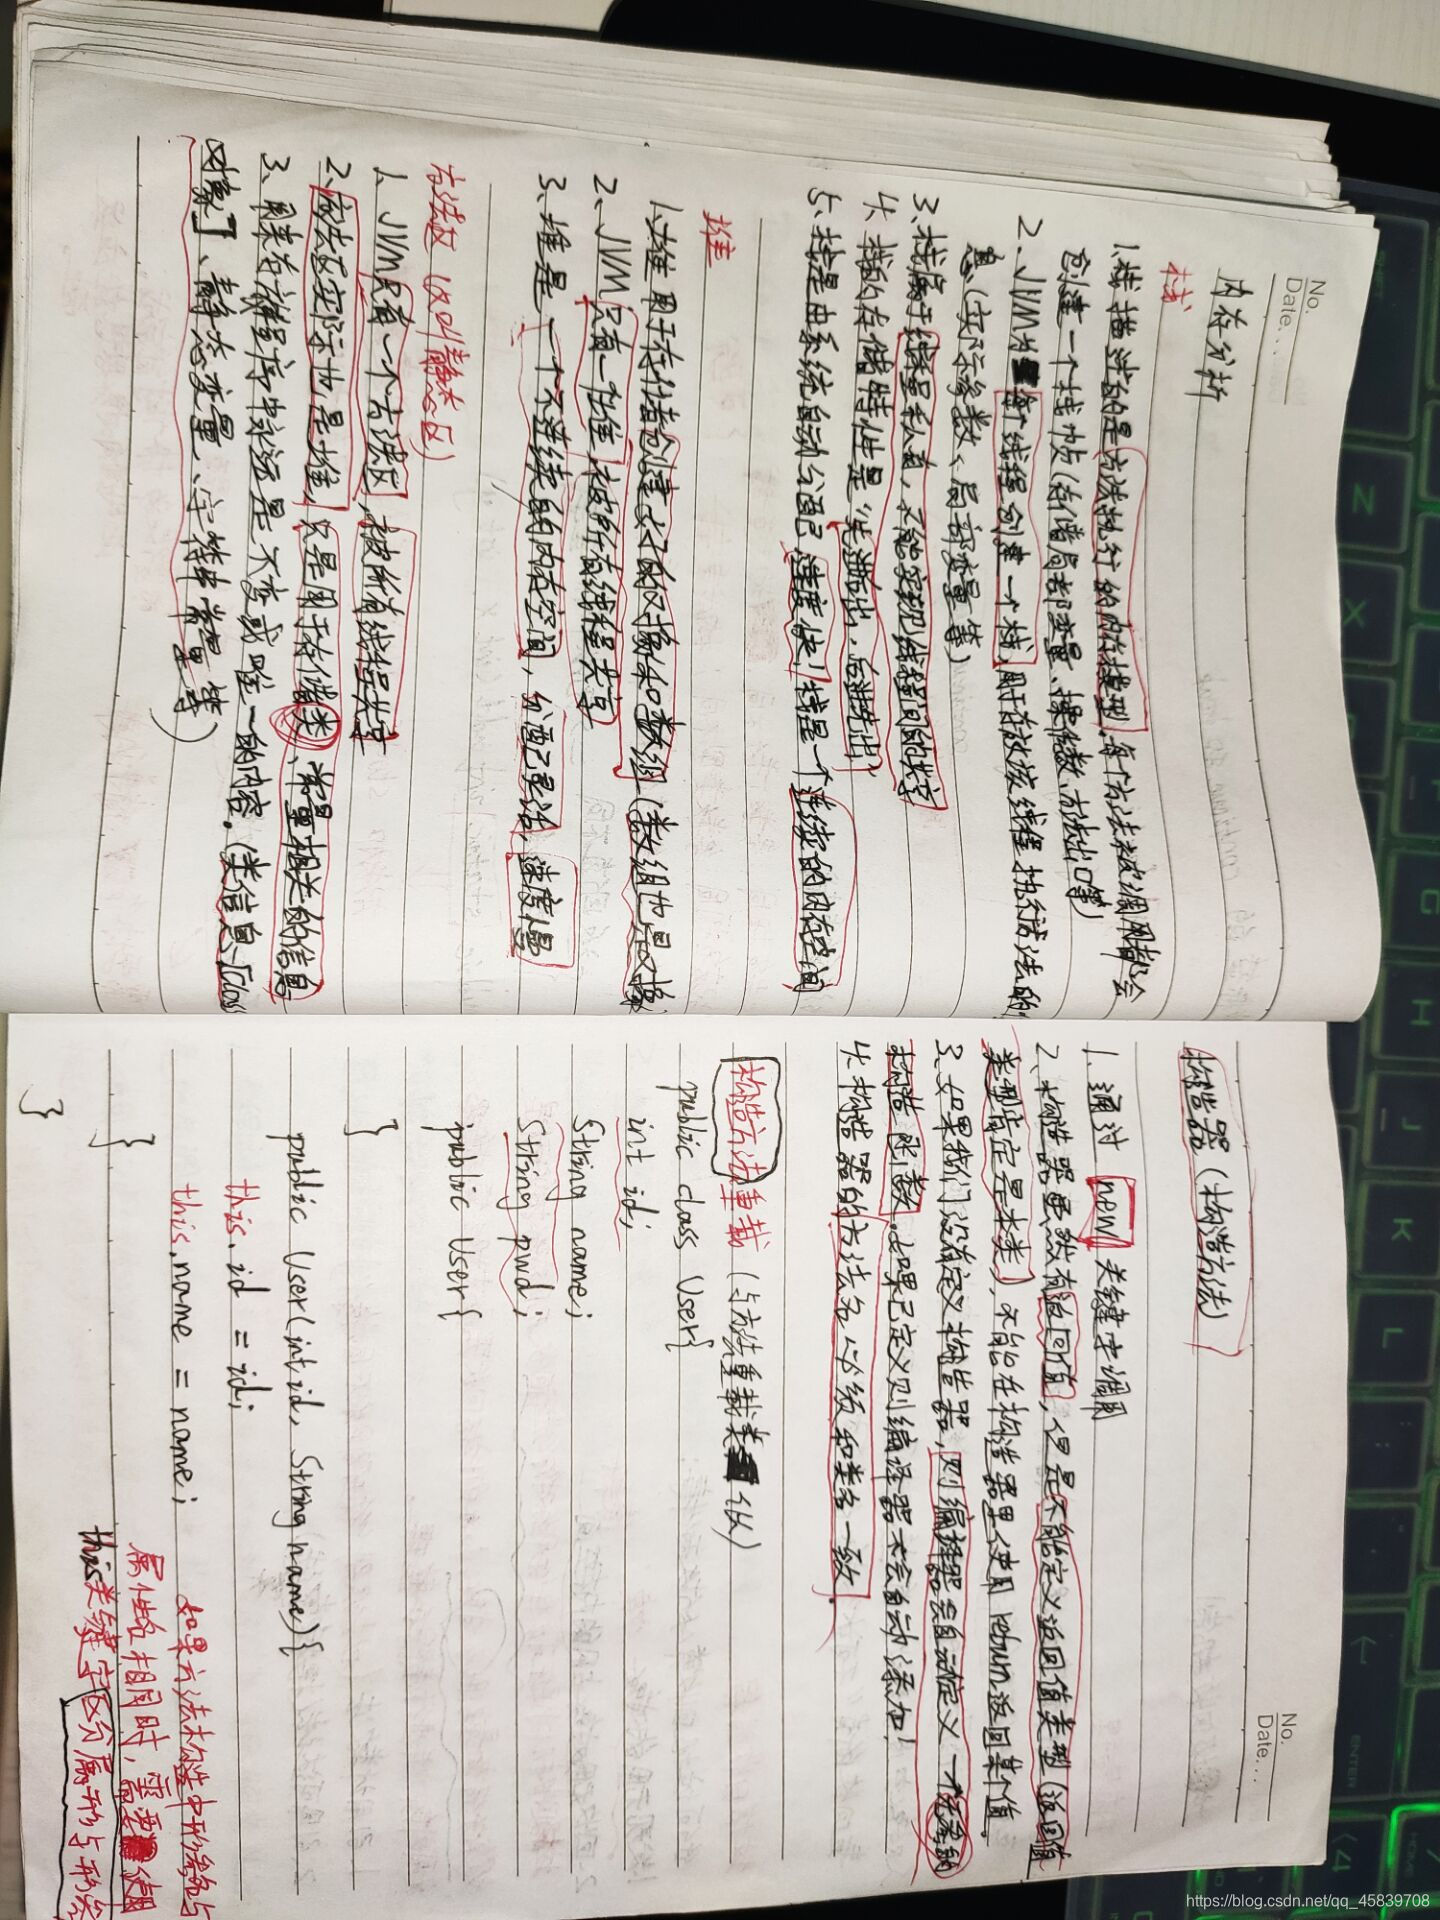 No.
Date...
内存分析
栈
1.栈描述的是方法执行的内存模型,每个方法被调用都会
创建一个栈帧(存储局部变量、操作数、方法出口等)
2、JVM为每个线程创建一个栈,用于存放该线程执行方法的
息(实际参数、局部变量等)
3.栈属于线程私有,不能实现线程间的共享
4、栈的存储特性是“先进后出,后进先出”
5、栈是由系统自动分配,速度快!栈是一个连续的内存空间
堆
1、堆用于存储创建好的对象和数组(数组也是对象
2、JVM只有一个堆,被所有线程共享
3、堆是一个不连续的内存空间,分配灵活,速度慢
方法区(又叫静态区)
1、JVM只有一个方法区,被所有线程共享
2、方法区实际也是堆,只是用于存储类、常量相关的信息
3、用来存放程序中永远是不变或唯一的内容.(类信息、「Class
对象」、静态变量、字符串常量等)
No.
Date...
构造器(构造方法)
1、通过 new 关键字调用
2、构造器虽然有返回值,但是不能定义返回值类型(返回值
类型肯定是本类),不能在构造器里使用return返回某个值.
3、如果我们没有定义构造器,则编译器会自动定义一个无参的
构造函数.如果已定义则编译器不会自动添加!
4、构造器的方法名必须和类名一致.
构造方法重载(与方法重载类似)
public class User{
int id;
String name;
String pwd;
public User{
}
public User(int id, String name){
this.id = id;
this.name = name;
}
}
如果方法构造中形参名与
属性名相同时,需要使用
this关键字区分属形与形参
https://blog.csdn.net/qq_45839708